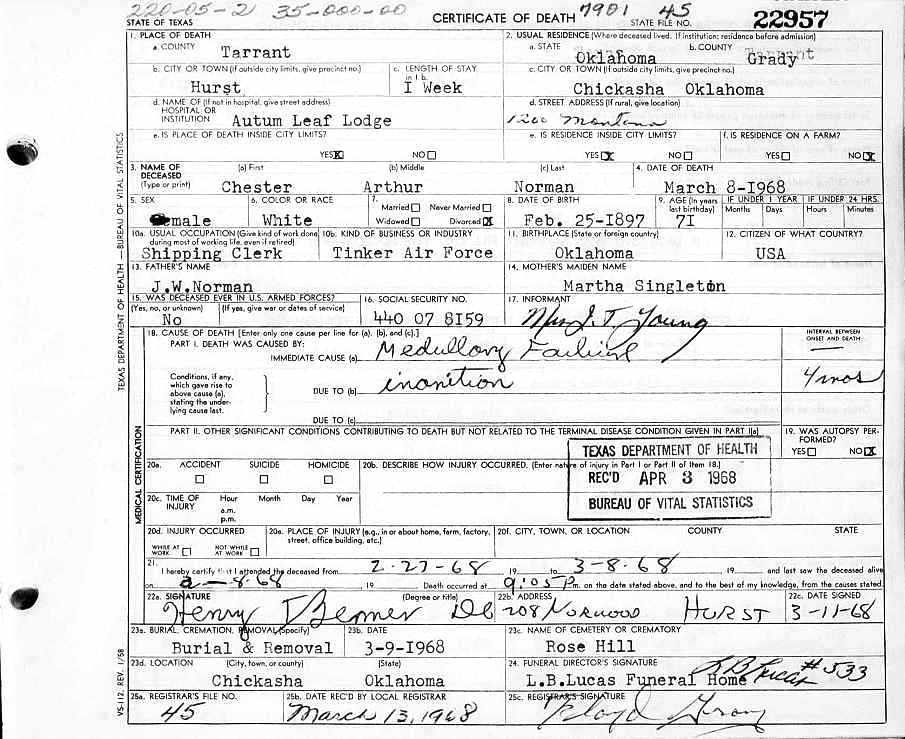 220-05-2 35-000-00 7901 45
STATE OF TEXAS CERTIFICATE OF DEATH STATE FILE NO. 22957
1. PLACE OF DEATH 2. USUAL RESIDENCE (Where deceased lived. If institution: residence before admission)
a. COUNTY a. STATE b. COUNTY
Tarrant Oklahoma Grady
b. CITY OR TOWN (If outside city limits, give precinct no.) c. LENGTH OF STAY in 1 b. c. CITY OR TOWN (If outside city limits, give precinct no.)
Hurst I Week Chickasha Oklahoma
d. NAME OF (If not in hospital, give street address) HOSPITAL OR INSTITUTION d. STREET ADDRESS (If rural, give location)
Autum Leaf Lodge 1200 Montana
e. IS PLACE OF DEATH INSIDE CITY LIMITS? e. IS RESIDENCE INSIDE CITY LIMITS? f. IS RESIDENCE ON A FARM?
YES X NO YES X NO YES NO X
3. NAME OF DECEASED (Type or print) (a) First (b) Middle (c) Last 4. DATE OF DEATH
Chester Arthur Norman March 8-I968
5. SEX 6. COLOR OR RACE 7. Married Never Married Widowed Divorced X 8. DATE OF BIRTH 9. AGE (In years last birthday) IF UNDER 1 YEAR Months Days IF UNDER 24 HRS. Hours Minutes
male White Feb. 25-I897 7I
10a. USUAL OCCUPATION (Give kind of work done during most of working life, even if retired) 10b. KIND OF BUSINESS OR INDUSTRY 11. BIRTHPLACE (State or foreign country) 12. CITIZEN OF WHAT COUNTRY?
Shipping Clerk Tinker Air Force Oklahoma USA
13. FATHER'S NAME 14. MOTHER'S MAIDEN NAME
J.W.Norman Martha Singleton
15. WAS DECEASED EVER IN U.S. ARMED FORCES? 16. SOCIAL SECURITY NO. 17. INFORMANT
(Yes, no, or unknown) (If yes, give war or dates of service)
No 440 07 8I59 Mrs J. T. Young
18. CAUSE OF DEATH [Enter only one cause per line for (a). (b), and (c).] INTERVAL BETWEEN ONSET AND DEATH
PART I. DEATH WAS CAUSED BY:
IMMEDIATE CAUSE (a) Medullary Failure
Conditions, if any, which gave rise to above cause (a), stating the underlying cause last.
DUE TO (b) inanition 4 mos
DUE TO (c)
PART II. OTHER SIGNIFICANT CONDITIONS CONTRIBUTING TO DEATH BUT NOT RELATED TO THE TERMINAL DISEASE CONDITION GIVEN IN PART I(a) 19. WAS AUTOPSY PERFORMED?
YES NO X
TEXAS DEPARTMENT OF HEALTH
REC'D APR 3 1968
BUREAU OF VITAL STATISTICS
20a. ACCIDENT SUICIDE HOMICIDE 20b. DESCRIBE HOW INJURY OCCURRED. (Enter nature of injury in Part I or Part II of Item 18.)
20c. TIME OF INJURY Hour a.m. p.m. Month Day Year
20d. INJURY OCCURRED WHILE AT WORK NOT WHILE AT WORK 20e. PLACE OF INJURY (e.g., in or about home, farm, factory, street, office building, etc.) 20f. CITY, TOWN, OR LOCATION COUNTY STATE
21. I hereby certify that I attended the deceased from 2-27-68 19 to 3-8-68 19 and last saw the deceased alive
on 2-8-68 19 Death occurred at 9:05 P m. on the date stated above, and to the best of my knowledge, from the causes stated.
22a. SIGNATURE (Degree or title) 22b. ADDRESS 22c. DATE SIGNED
Henry 208 Norwood HURST 3-11-68
23a. BURIAL, CREMATION, REMOVAL (Specify) 23b. DATE 23c. NAME OF CEMETERY OR CREMATORY
Burial & Removal 3-9-I968 Rose Hill
23d. LOCATION (City, town, or county) (State) 24. FUNERAL DIRECTOR'S SIGNATURE
Chickasha Oklahoma L.B.Lucas Funeral Home L B Lucas #533
25a. REGISTRAR'S FILE NO. 25b. DATE REC'D BY LOCAL REGISTRAR 25c. REGISTRAR'S SIGNATURE
45 March 13, 1968
TEXAS DEPARTMENT OF HEALTH — BUREAU OF VITAL STATISTICS
MEDICAL CERTIFICATION
VS-112 REV. 1/58